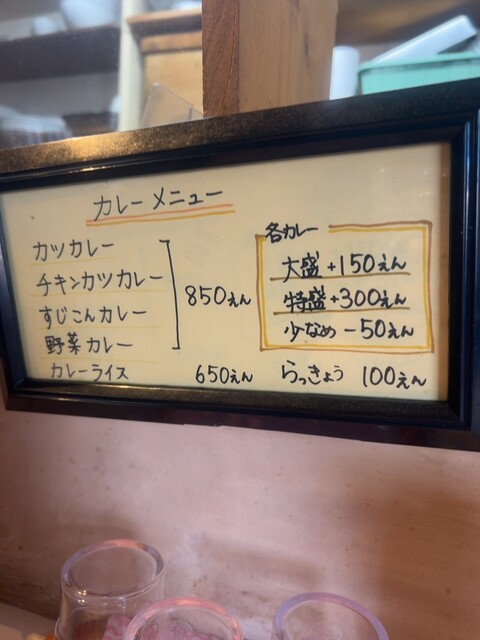 カレーメニュー
カツカレー
チキンカツカレー
すじこんカレー
野菜カレー
850えん
カレーライス 650えん
各カレー
大盛 +150えん
特盛 +300えん
少なめ -50えん
らっきょう 100えん